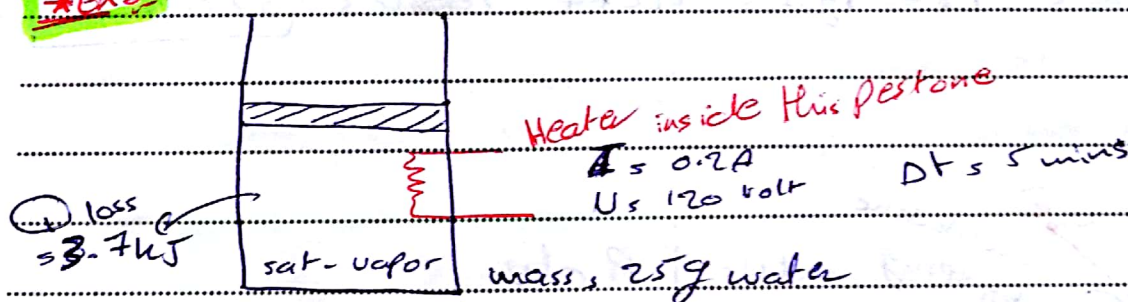 *Ex
Heater inside this Pestone
I = 0.2A
U = 120 volt
Dt = 5 mins
Q loss
= 3.7kJ
sat-vapor
mass = 25g water